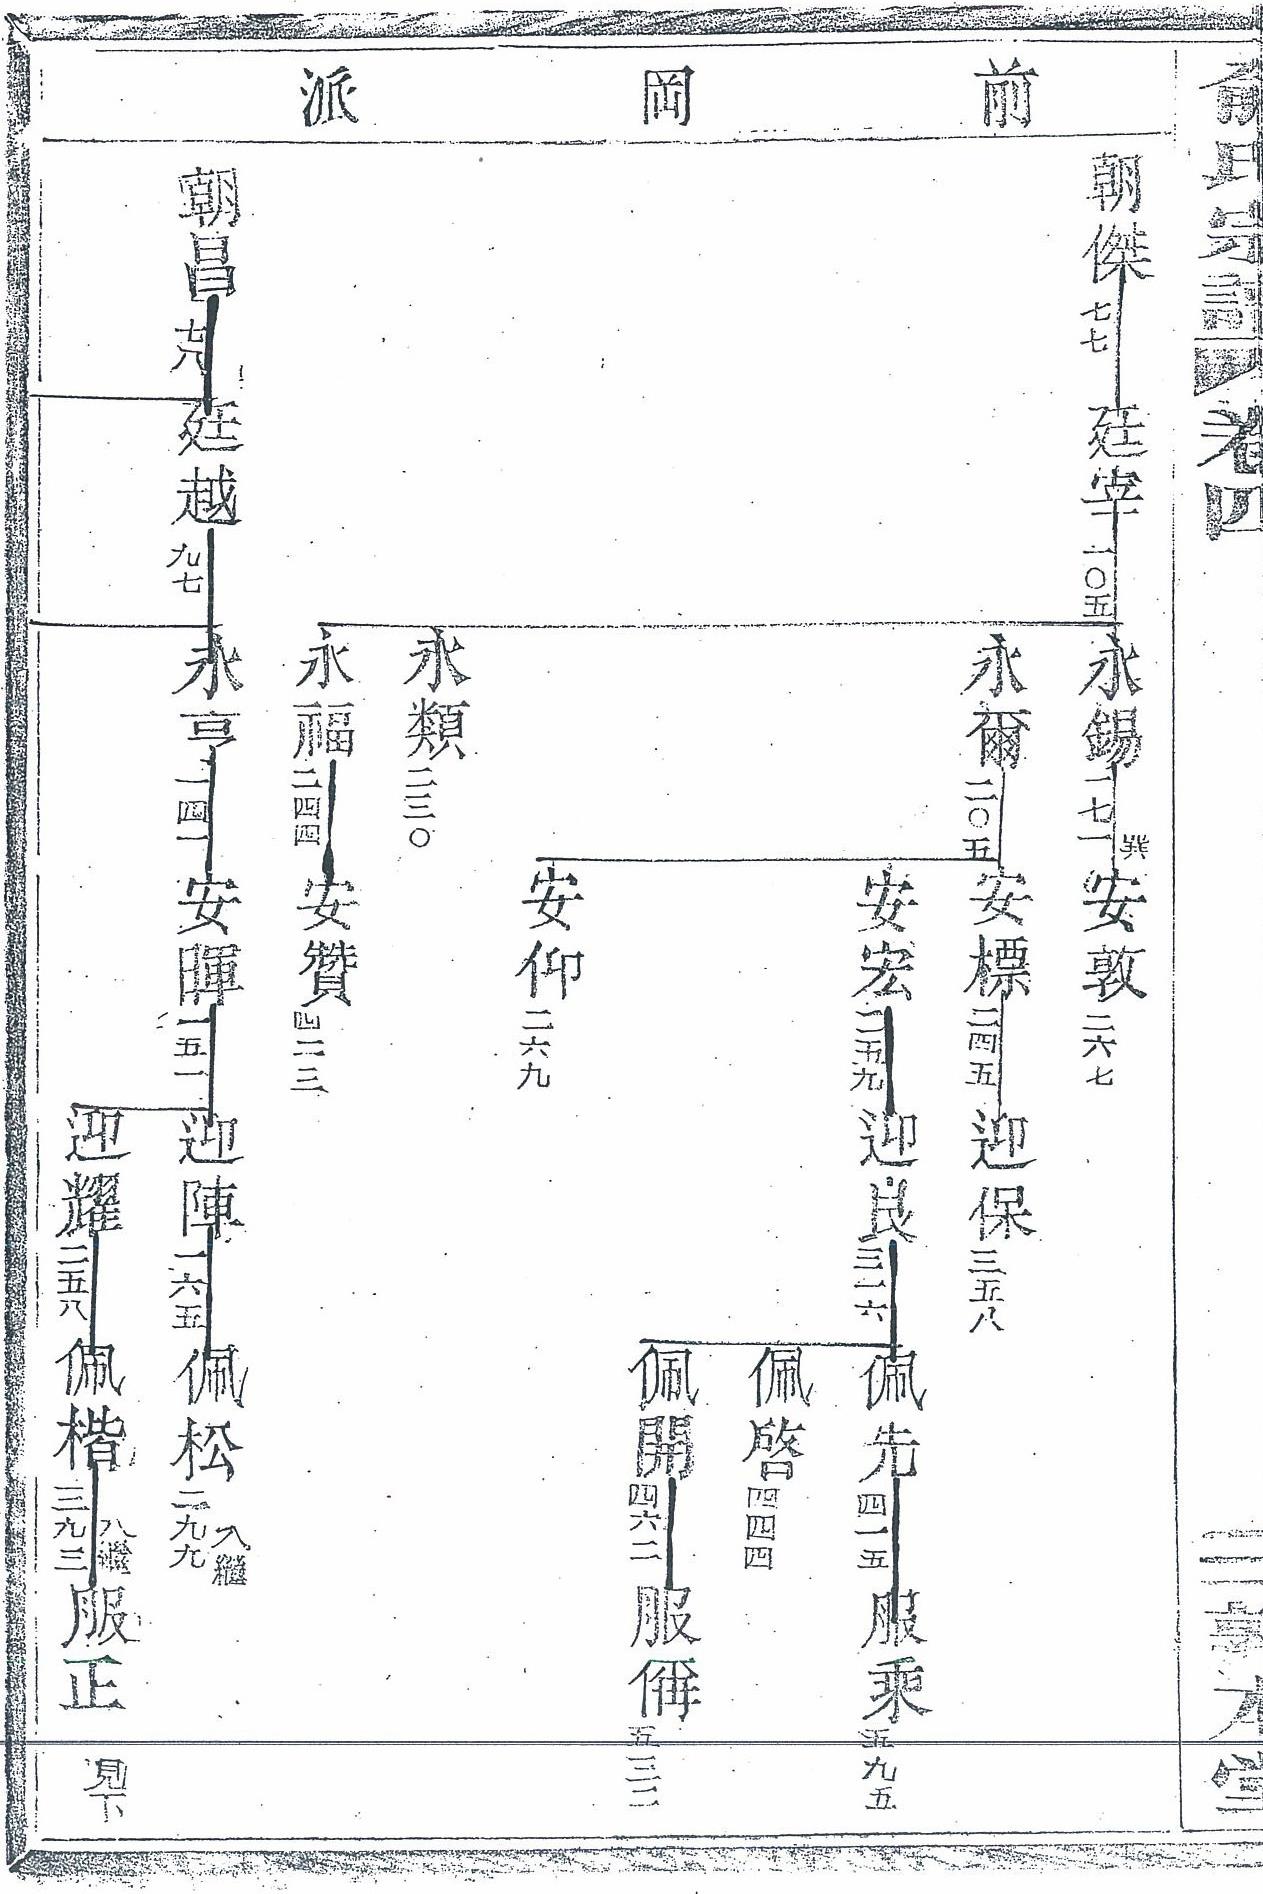 俞氏宗譜
卷四
三 敦本堂
前岡派
朝傑 七七
廷宰 一〇五
永錫 一七一
安敦 二六七
永爾 二〇五
安標 二四五
迎保 三五八
安宏 二五九
迎良 三一六
佩先 四一五
服乘 五九五
佩啓 四四四
佩開 四六二
服偁 五三二
安仰 二六九
永類 二三〇
永福 二四四
安贊 四二三
朝昌
廷越 九七
永亨 一四一
安暉 一五一
迎陣 一六五
佩松 二九九 入繼
迎耀 二五八
佩楷 三九三 入繼
服正
見下